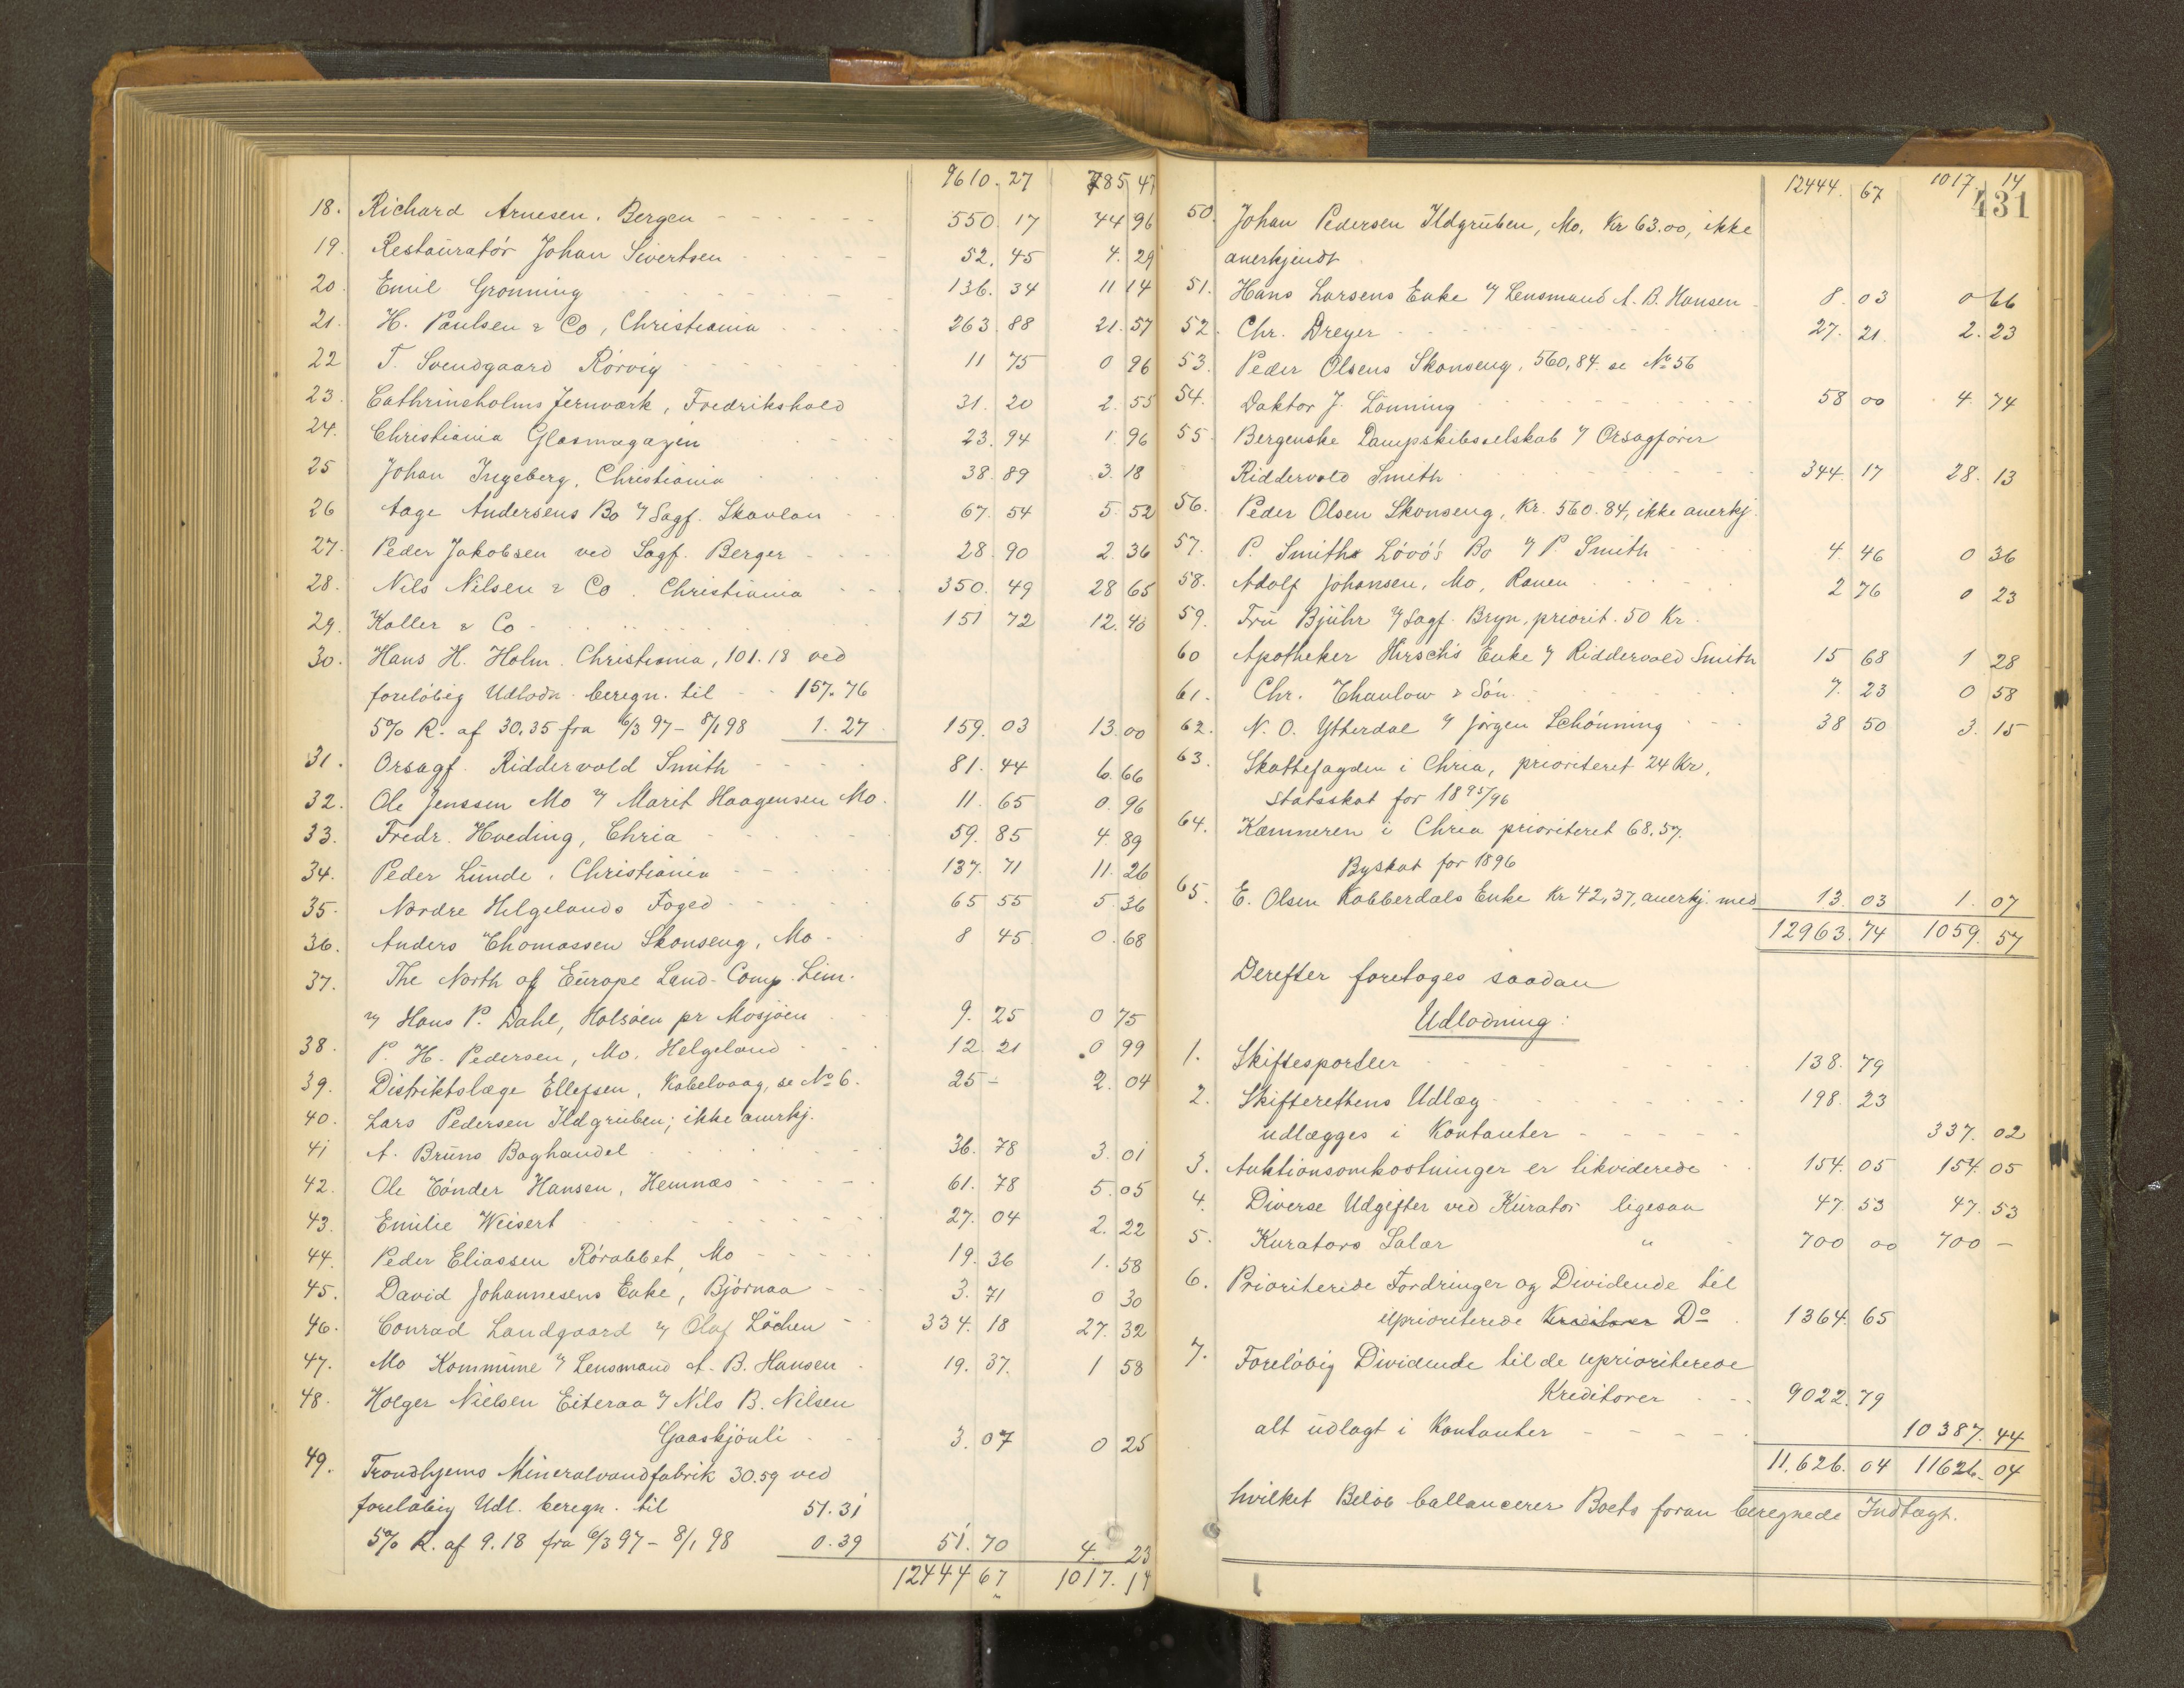 9610. 27 785 47
18. Richard Arnesen. Bergen - - - - - - 550. 17 44 96
19. Restauratór Johan Sivertsen - - - - - 52. 45 4. 29
20. Emil Grönning - - - - - 136. 34 11 14
21. H. Paulsen & Co, Christiania - - - - 263. 88 21. 57
22 T. Svendgaard Rörvig - - - - - 11 75 0 96
23. Cathrinsholms Jernværk, Fredrikshald 31. 20 2. 55
24. Christiania Glasmagazin - - - 23. 94 1. 96
25 Johan Ingeberg, Christiania - - - 38. 89 3. 18
26 Aage Andersens Bo v/ Sagf. Skavlan - - 67. 54 5. 52
27. Peder Jakobsen ved Sagf. Berger - - - 28. 90 2. 36
28. Nils Nilsen & Co. Christiania - - 350. 49 28 65
29. Koller & Co - - - - - 151 72 12. 40
30. Hans H. Holm. Christiania, 101.18 ved
forelöbig Udlodn. beregn. til - - 157.76
5% R. af 30.35 fra 6/3 97 - 8/1 98 1. 27. 159. 03 13. 00
31. Orsagf. Riddervold Smith - - - - 81. 44 6. 66
32. Ole Jenssen Mo v/ Marit Haagensen Mo. 11. 65 0. 96
33. Fredr. Hveding, Chria - - - - - 59. 85 4. 89
34. Peder Lunde, Christiania - - - - 137. 71 11. 26
35. Nordre Helgelands Foged - - - - - 65 55 5. 36
36. Anders Thomassen Skonseng, Mo - 8 45 0. 68
37. The North of Europe Land-Comp. Lim.
v/ Hans P. Dahl, Halsöen pr Mosjöen - - 9. 25 0 75
38. P. H. Pedersen, Mo, Helgeland - - - 12. 21 0 99
39. Distriktslæge Ellefsen, Kabelvaag, se No 6. 25 - 2. 04
40. Lars Pedersen Ildgruben; ikke anerkj.
41 A. Bruns Boghandel - - - - - 36. 78 3. 01
42. Ole Tönder Hansen, Hemnæs - - - - - 61. 78 5. 05
43. Emilie Weisert - - - - - 27. 04 2. 22
44. Peder Eliassen Rörabbet, Mo - - - - - 19. 36 1. 58
45. David Johannesens Enke, Björnaa - - - 3. 71 0 30
46. Conrad Landgaard v/ Olaf Löchen - - 334. 18 27. 32
47. Mo Kommune v/ Lensmand A. B. Hansen - 19. 37. 1 58
48. Holger Nielsen Eiteraa v/ Nils B. Nilsen
Gaaskjönli - - 3. 07 0 25
49. Trondhjems Mineralvandfabrik 30.59 ved
forelöbig Udl. beregn. til 51.31
5% R. af 9.18 fra 6/3 97 - 8/1 98 0.39 51. 70 4. 23
12444 67 1017. 14
12444. 67 1017. 14
431
50. Johan Pedersen Ildgruben, Mo, Kr 63.00, ikke
anerkjendt.
51. Hans Larsens Enke v/ Lensmand A. B. Hansen - 8. 03 0 66
52. Chr. Dreyer - - - - - 27. 21. 2. 23
53. Peder Olsens Skonseng, 560,84. se No 56
54. Doktor J. Lönning - - - - - 58 00 4. 74
55. Bergenske Dampskibsselskab v/ Orsagförer
Riddervold Smith - - - - - 344. 17 28. 13
56. Peder Olsen Skonseng, Kr. 560.84, ikke anerkj.
57. P. Smiths Lóvó's Bo v/ P. Smith - - - 4. 46 0 36
58. Adolf Johansen, Mo, Ranen - - - - - 2 76 0 23
59. Fru Bjuhr v/ Sagf. Bryn, priorit. 50 Kr.
60 Apotheker Hirsch's Enke v/ Riddervold Smith 15 68 1 28
61. Chr. Thaulow & Sön - - - - - 7. 23 0 58
62. N. O. Ytterdal v/ Jörgen Schönning - - - 38 50 3. 15
63. Skattefogden i Chria, prioriteret 24 Kr,
Statsskat for 1895/96
64. Kæmneren i Chria prioriteret 68.57.
Byskat for 1896
65. E. Olsen Kobberdals Enke Kr 42,37, anerkj. med 13. 03 1. 07
12963. 74 1059. 57
Derefter foretoges saadan
Udlodning:
1. Skiftesportler - - - - - 138. 79
2. Skifterettens Udlæg - - - - - 198. 23
udlægges i Kontanter - - - - - 337. 02
3. Auktionsomkostninger er likviderede - - 154. 05 154. 05
4. Diverse Udgifter ved Kurator ligesaa 47. 53 47. 53
5. Kurators Salær " - 700 00 700 -
6. Prioriterede Fordringer og Dividende til
uprioriterede Kreditorer Do - 1364. 65
7. Forelöbig Dividende til de uprioriterede
Kreditorer - - - 9022. 79
alt udlagt i Kontanter - - - - - 10387. 44
11.626. 04 11626. 04
hvilket Belöb ballancerer Boets foran beregnede Indtægt.